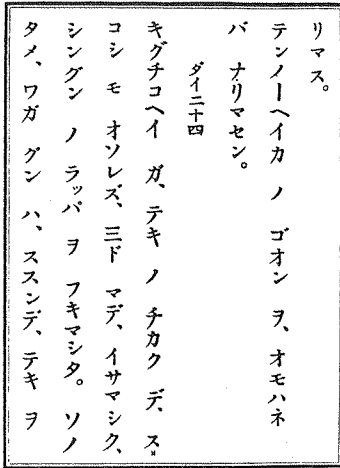 リマス。
テンノーヘイカ ノ ゴオン ヲ、オモハネ
バ ナリマセン。
ダイ二十四
キグチコヘイ ガ、テキ ノ チカク デ、ス
コシ モ オソレズ、三ド マデ、イサマシク、
シングン ノ ラッパ ヲ フキマシタ。ソノ
タメ、ワガ グン ハ、ススンデ、テキ ヲ